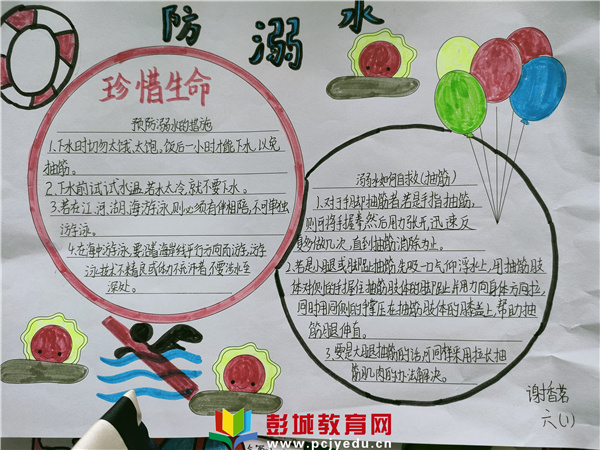 防溺水
珍惜生命
预防溺水的措施
1.下水时切勿太饿、太饱。饭后一小时才能下水,以免
抽筋。
2.下水前试试水温,若水太冷,就不要下水。
3.若在江、河、湖、海游泳,则必须有伴相陪,不可单独
游泳。
4.在海中游泳,要沿着海岸线平行方向而游,游
泳技术不精良或体力不充沛者,不要涉水至
深处。
溺水如何自救(抽筋)
1.对于手脚抽筋者,若是手指抽筋,
则可将手握拳,然后用力张开,迅速反
复多做几次,直到抽筋消除为止。
2.若是小腿或脚趾抽筋,先吸一口气,仰浮水上,用抽筋肢
体对侧的手握住抽筋肢体的脚趾,并用力向身体方向拉,
同时用同侧的手掌压在抽筋肢体的膝盖上,帮助抽
筋腿伸直。
3.要是大腿抽筋的话,可同样采用拉长抽
筋肌肉的办法解决。
六(1)
彭城教育网
www.pcjyedu.cn